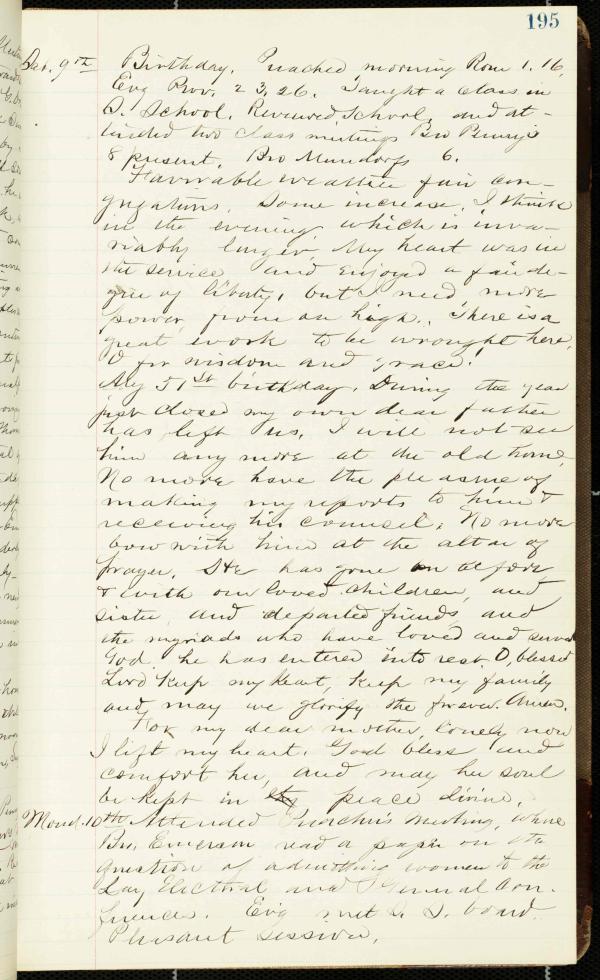 195
Sab. 9th Birthday. Preached morning Rom 1. 16,
Evg Prov. 23, 26. Taught a class in
S. School. Reviewed School, and at-
tended two class meetings Bro Penny's
8 present. Bro Mundorfs 6.
Favorable weather fair con-
gregations. Some increase, I think
in the evening which is inva-
riably larger, My heart was in
the service and enjoyed a fair de-
gree of liberty, but I need more
power from on high. There is a
great work to be wrought here,
O for wisdom and grace!
My 51st birthday. During the year
just closed my own dear father
has left us. I will not see
him any more at the old home.
No more have the pleasure of
making my reports to him &
receiving his counsel. No more
bow with him at the altar of
prayer. He has gone on before
& with our loved children, and
sister and departed friends, and
the myriads who have loved and served
God he has entered into rest. O, blessed
Lord keep my heart, keep my family
and may we glorify the forever. Amen.
For my dear mother, lonely now
I lift my heart. God bless and
comfort her, and may her soul
be kept in peace divine.
Mond. 10th Attended Preacher's Meeting, where
Bro. Emerson read a paper on the
question of admitting women to the
Lay Electoral and General Con-
ferences. Evg met S. S. board.
Pleasant Session.